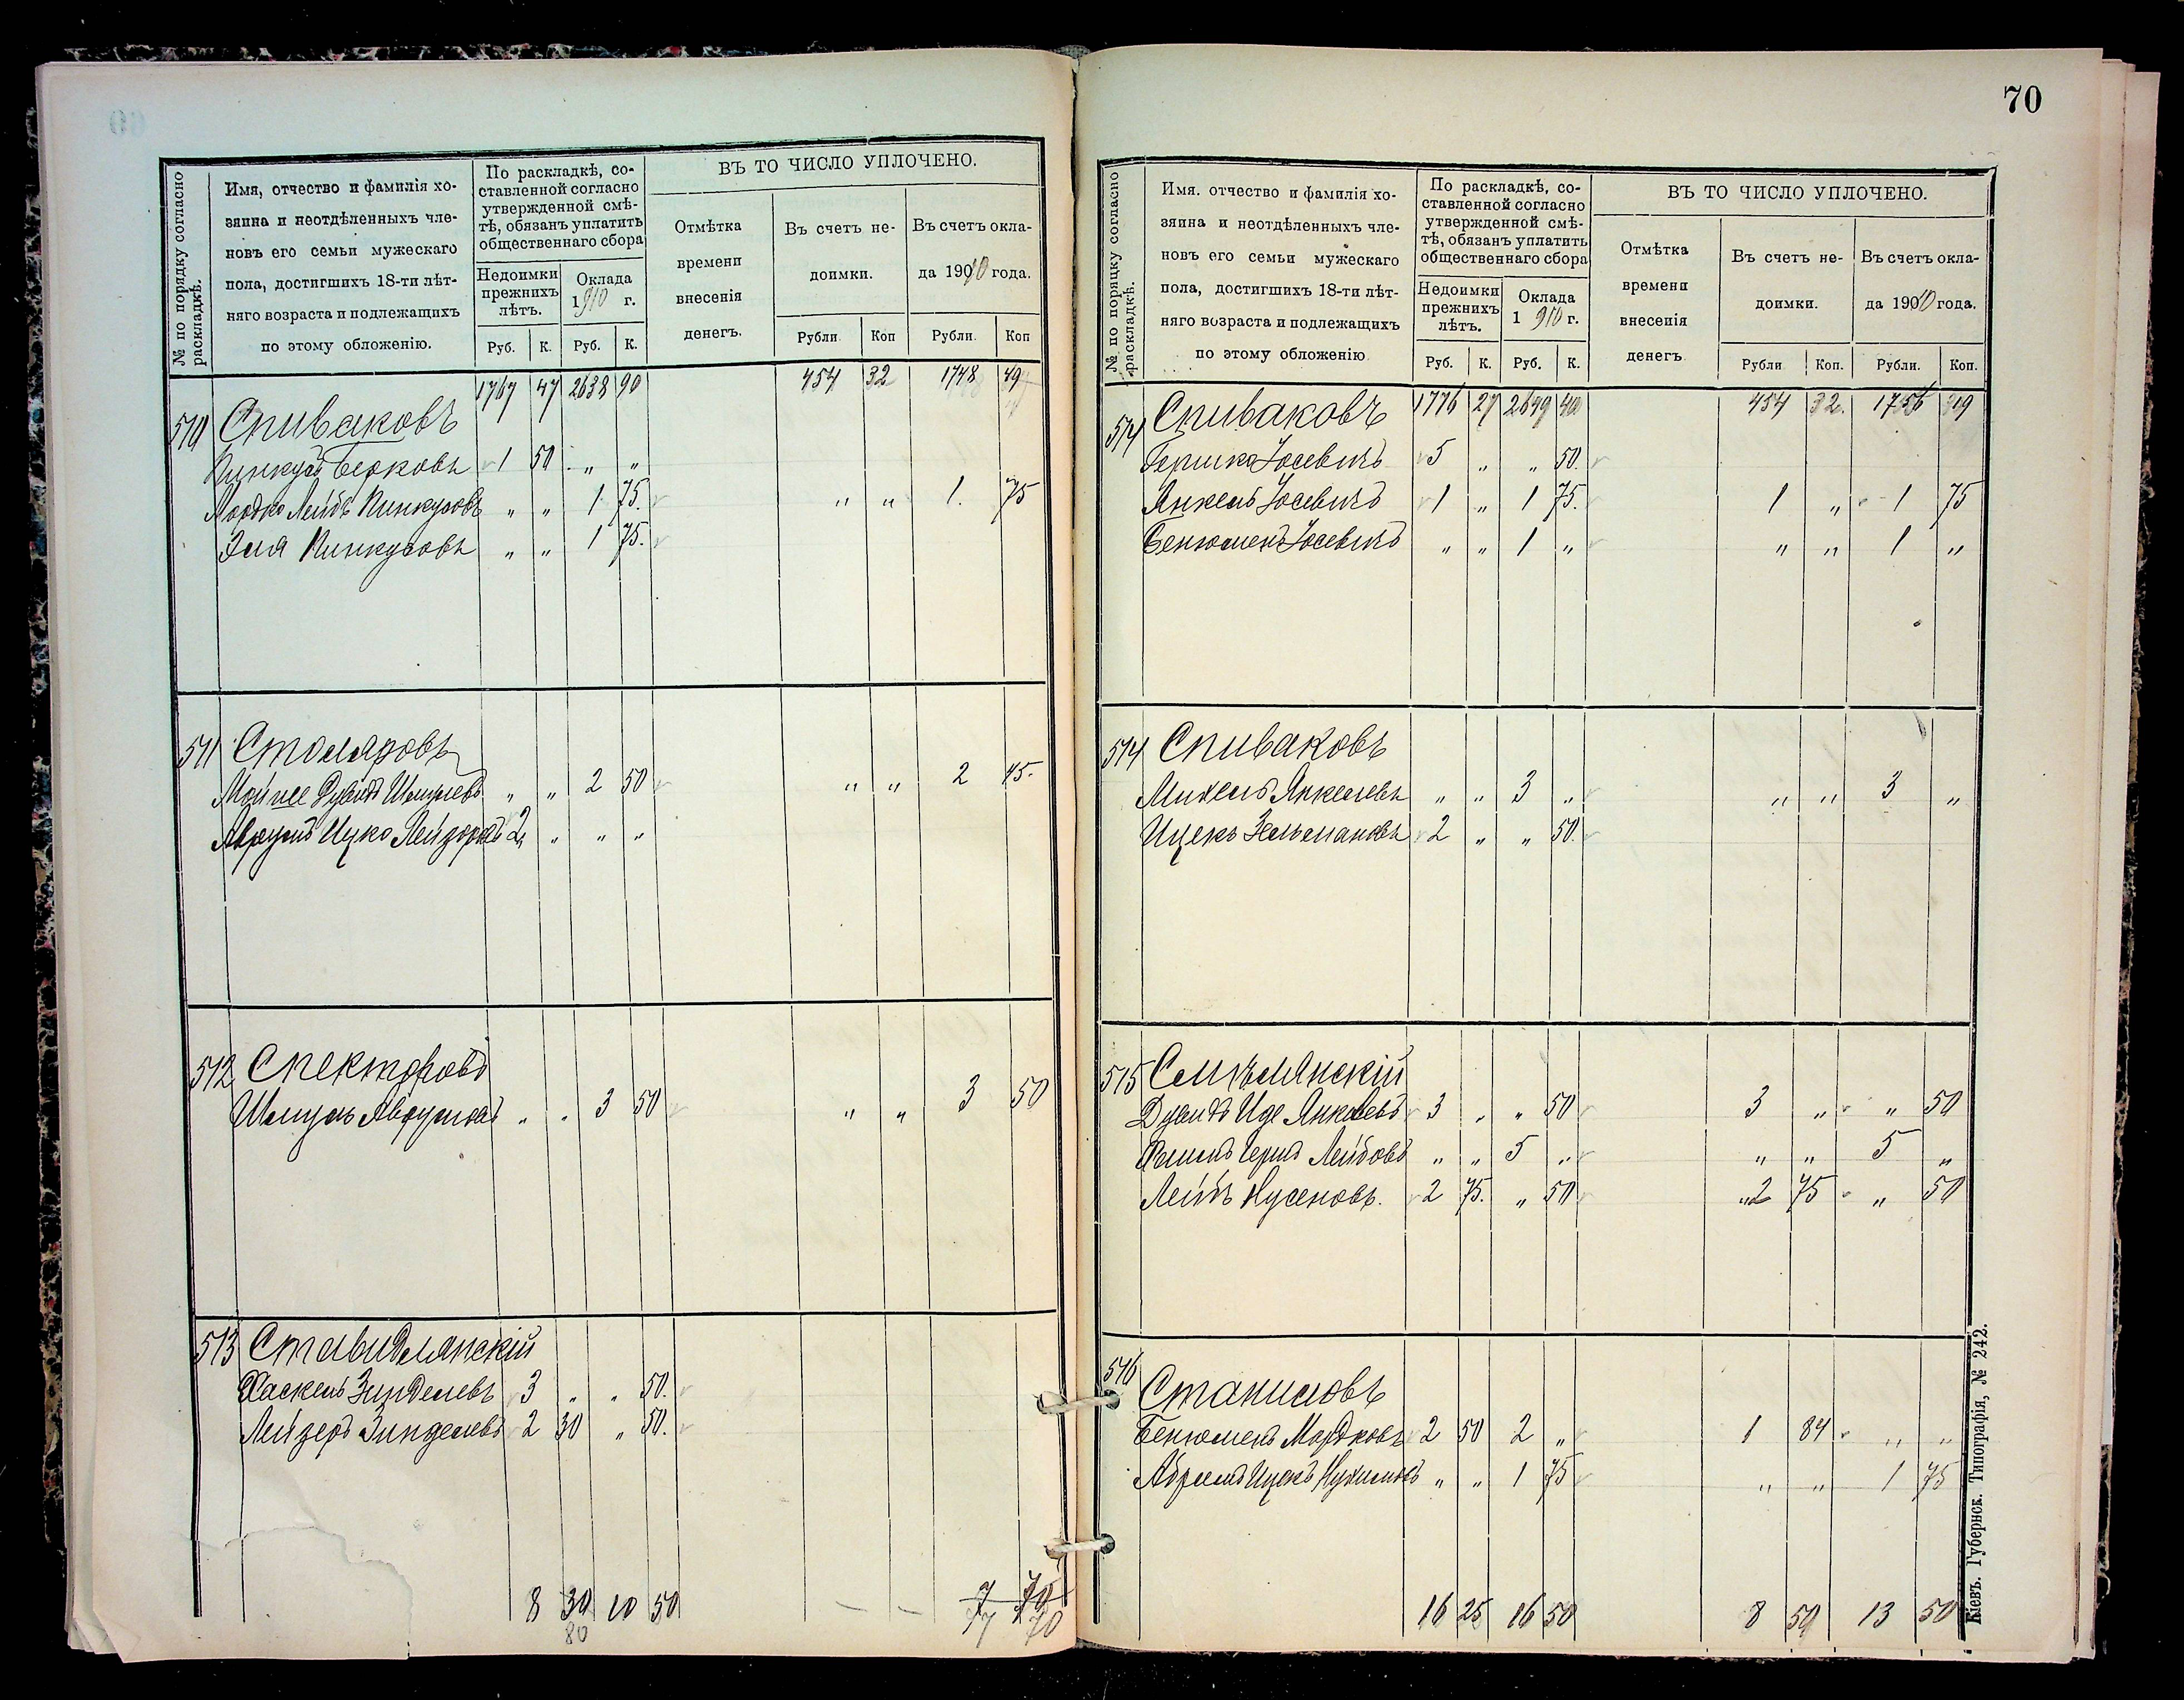 № по порядку согласно раскладкѣ.
Имя, отчество и фамилія хо-
зяина и неотдѣленныхъ чле-
новъ его семьи мужескаго
пола, достигшихъ 18-ти лѣт-
няго возраста и подлежащихъ
по этому обложенію.
По раскладкѣ, со-
ставленной согласно
утвержденной смѣ-
тѣ, обязанъ уплатить
общественнаго сбора
Недоимки
прежнихъ
лѣтъ.
Оклада
1910 г.
ВЪ ТО ЧИСЛО УПЛОЧЕНО.
Отмѣтка
времени
внесенія
денегъ.
Въ счетъ не-
доимки.
Въ счетъ окла-
да 1910 года.
Руб. К. Руб. К. Рубли. Коп Рубли. Коп
1767 47 2638 90 454 32 1748 49
510 Спиваковъ
Пинкусъ Берковъ 1 50 „ „
Мордко Лейбъ Пинкусовъ „ „ 1 75. „ „ 1. 75
Эля Пинкусовъ „ „ 1 75.
511 Столяровъ
Мойше Дувидъ Шмулевъ „ „ 2 50 „ „ 2 45.
Аврумъ Ицко Лейзоровъ 2 „ „ „
512 Спекторовъ
Шмуль Аврумовъ „ „ 3 50 „ „ 3 50
513 Ставидлянскій
Хаскель Зинделевъ 3 „ „ 50.
Лейзеръ Зинделевъ 2 30 „ 50.
8 30 10 50 — — 7 70
80 77 70
70
№ по порядку согласно раскладкѣ.
Имя. отчество и фамилія хо-
зяина и неотдѣленныхъ чле-
новъ его семьи мужескаго
пола, достигшихъ 18-ти лѣт-
няго возраста и подлежащихъ
по этому обложенію
По раскладкѣ, со-
ставленной согласно
утвержденной смѣ-
тѣ, обязанъ уплатить
общественнаго сбора
Недоимки
прежнихъ
лѣтъ.
Оклада
1910 г.
ВЪ ТО ЧИСЛО УПЛОЧЕНО.
Отмѣтка
времени
внесенія
денегъ
Въ счетъ не-
доимки.
Въ счетъ окла-
да 1910 года.
Руб. К. Руб. К. Рубли Коп. Рубли. Коп.
1776 27 2649 40 454 32. 1756 19
514 Спиваковъ
Гершко Іосевичъ 5 „ „ 50.
Янкель Іосевичъ 1 „ 1 75. 1 „ 1 75
Бенюменъ Іосевичъ „ „ 1 „ „ „ 1 „
514 Спиваковъ
Михель Янкелевъ „ „ 3 „ „ „ 3 „
Ицекъ Зельмановъ 2 „ „ 50.
515 Смѣлянскій
Дувидъ Иде Янкелевъ 3 „ „ 50 3 „ „ 50
Герша Лейбовъ „ „ 5 „ „ „ 5 „
Лейбъ Нусеновъ. 2 75. „ 50 „2 75 „ 50
516 Станиловъ
Бенюменъ Мордковъ 2 50 2 „ 1 84 „ „
Абрамъ Ицекъ Нухимовъ „ „ 1 75 „ „ 1 75
16 25 16 50 8 59 13 50
Кіевъ. Губернск. Типографія, № 242.